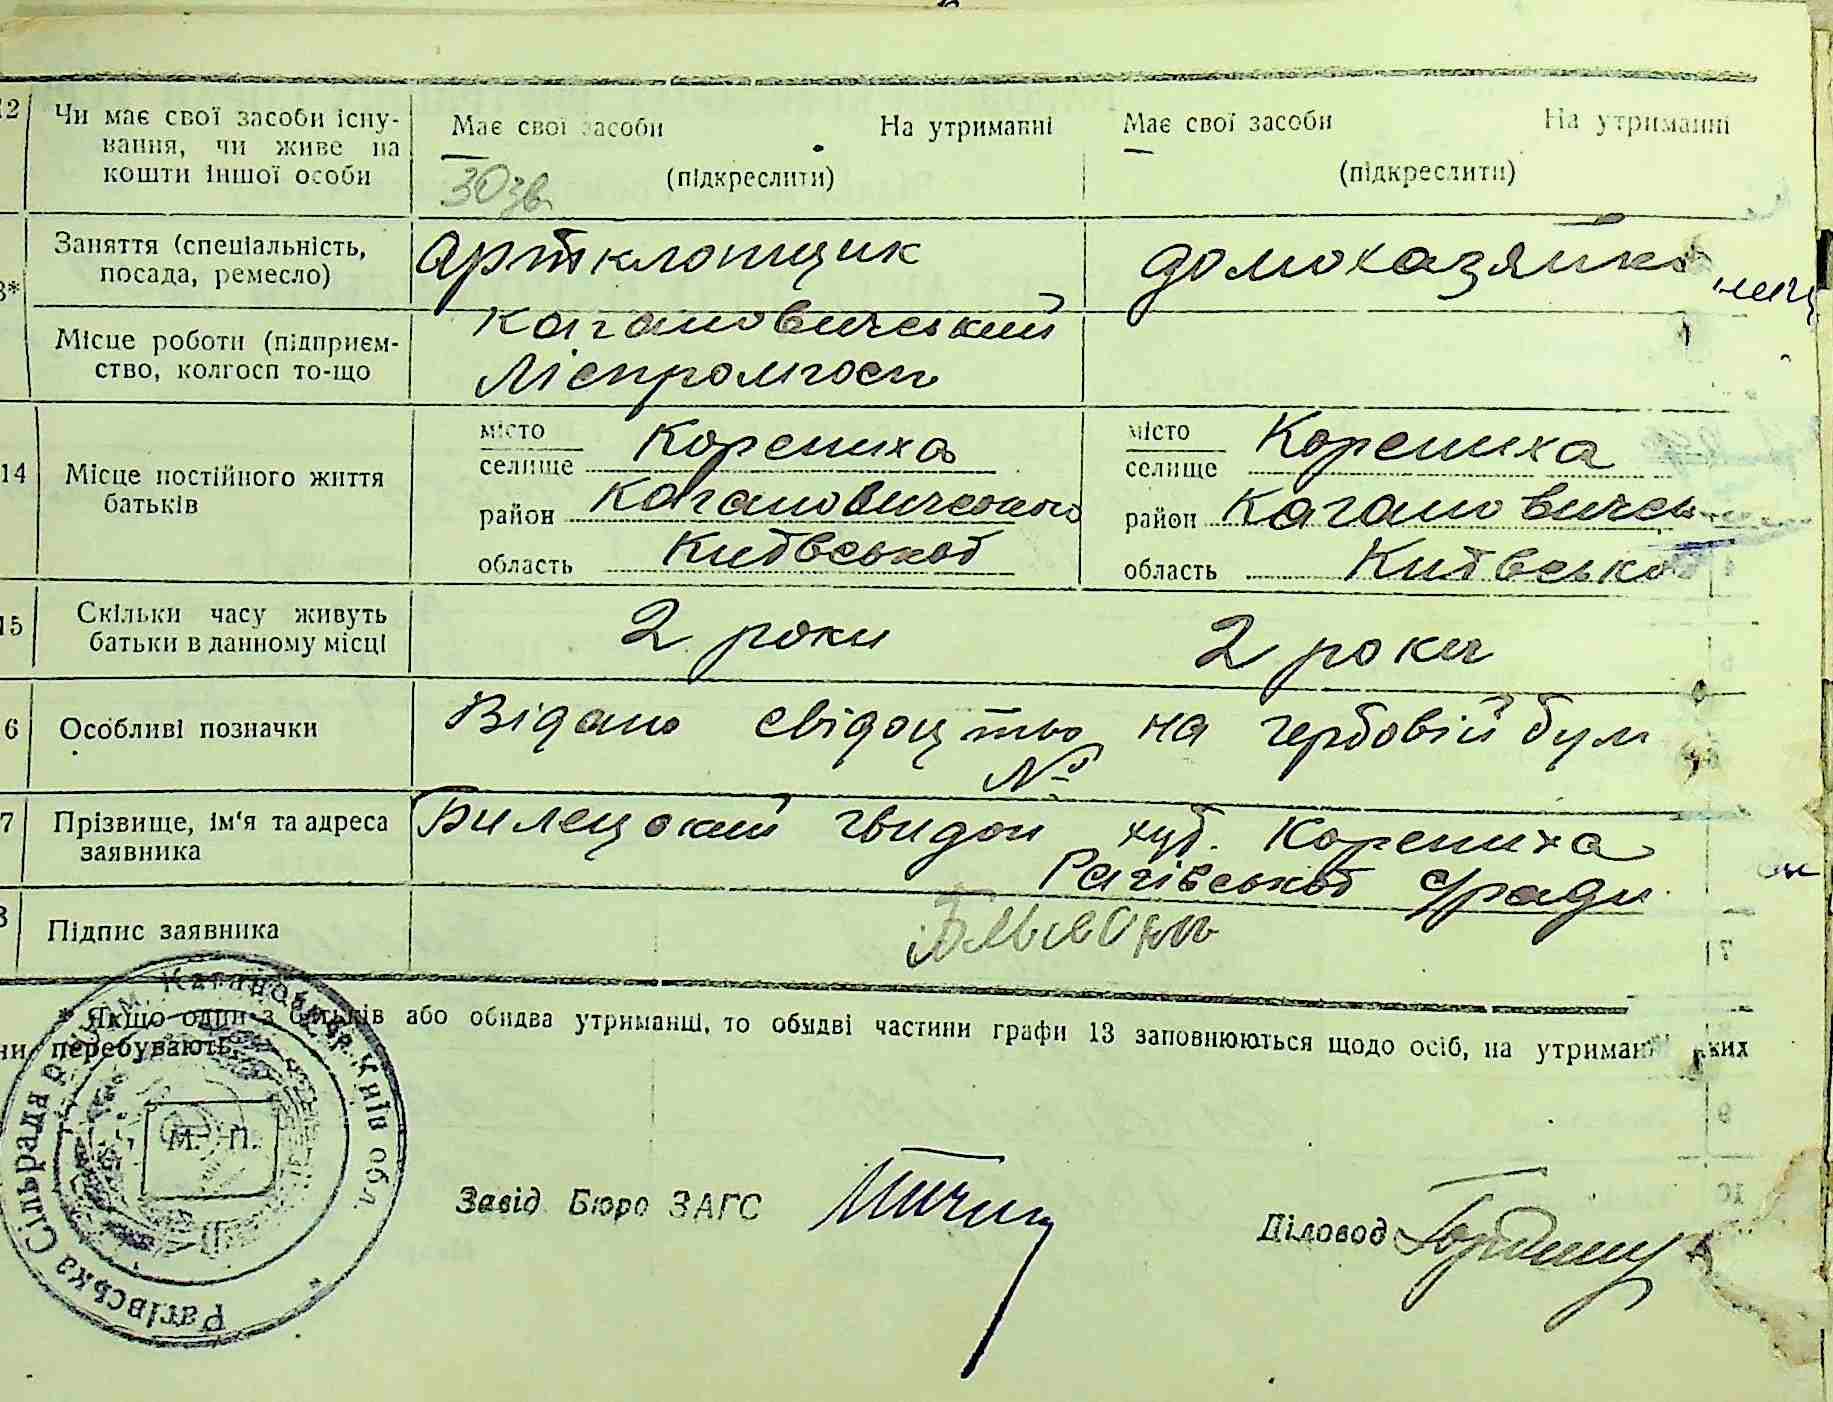 12 Чи має свої засоби існу-
вання, чи живе на
кошти іншої особи
Має свої засоби На утриманні
(підкреслити)
Має свої засоби На утриманні
(підкреслити)
Заняття (спеціальність,
посада, ремесло)
домохазяйка
Місце роботи (підприєм-
ство, колгосп то-що
Кагановичський
Ліспромгосп
14 Місце постійного життя
батьків
місто
селище Корениха
район Кагановичського
область Київської
місто
селище Корениха
район Кагановичсь
область Київсько
15 Скільки часу живуть
батьки в данному місці
2 роки 2 роки
6 Особливі позначки
Відано свідоцтво на гербовій бум
№
7 Прізвище, ім'я та адреса
заявника
Билецский Гвидон хут. Корениха
Рагівської с/ради
8 Підпис заявника
* Якщо один з батьків або обидва утриманці, то обидві частини графи 13 заповнюються щодо осіб, на утриманні яких
ни перебувають.
М. П.
Рагівська Сільрада
Завід Бюро ЗАГС
Діловод